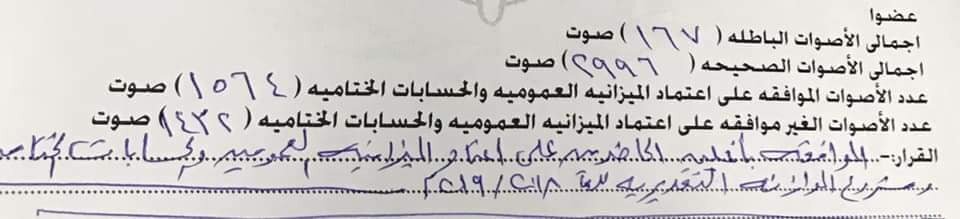 عضوا
اجمالى الأصوات الباطله ( ١٦٧ ) صوت
اجمالى الأصوات الصحيحه ( ٢٩٩٦ ) صوت
عدد الأصوات الموافقه على اعتماد الميزانيه العموميه والحسابات الختاميه ( ١٥٦٤ ) صوت
عدد الأصوات الغير موافقه على اعتماد الميزانيه العموميه والحسابات الختاميه ( ١٤٣٢ ) صوت
القرار:- الموافقه بأغلبية الحاضرين على اعتماد الميزانيه العموميه والحسابات الختاميه
ومشروع الموازنه التقديريه للعام ٢٠١٨ / ٢٠١٩